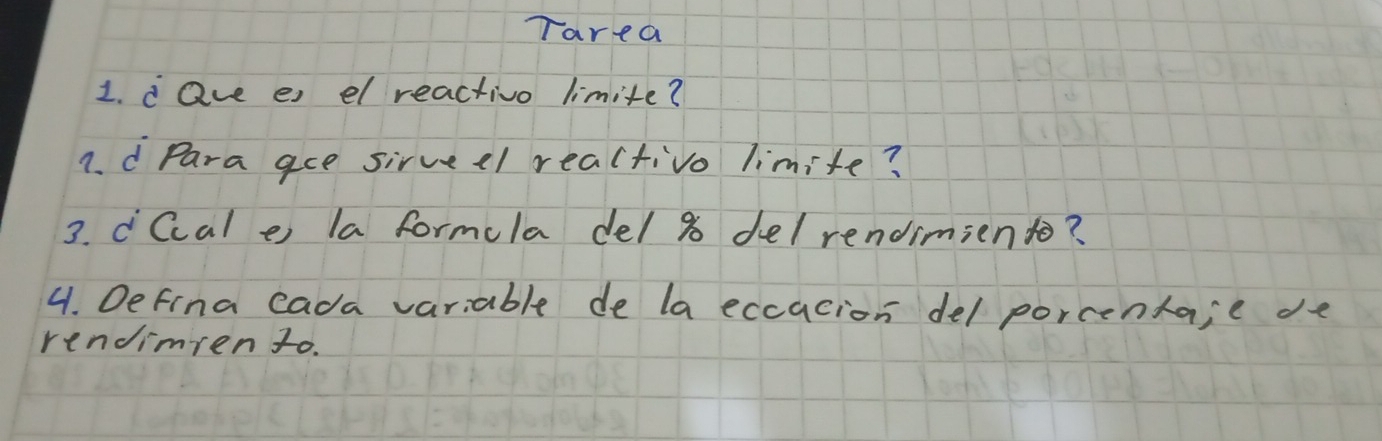 Tarea
1. ¿Que es el reactivo limite?
2. ¿Para que sirve el reactivo limite?
3. ¿Cual es la formula del % del rendimiento?
4. Defina cada variable de la ecuación del porcentaje de
rendimiento.